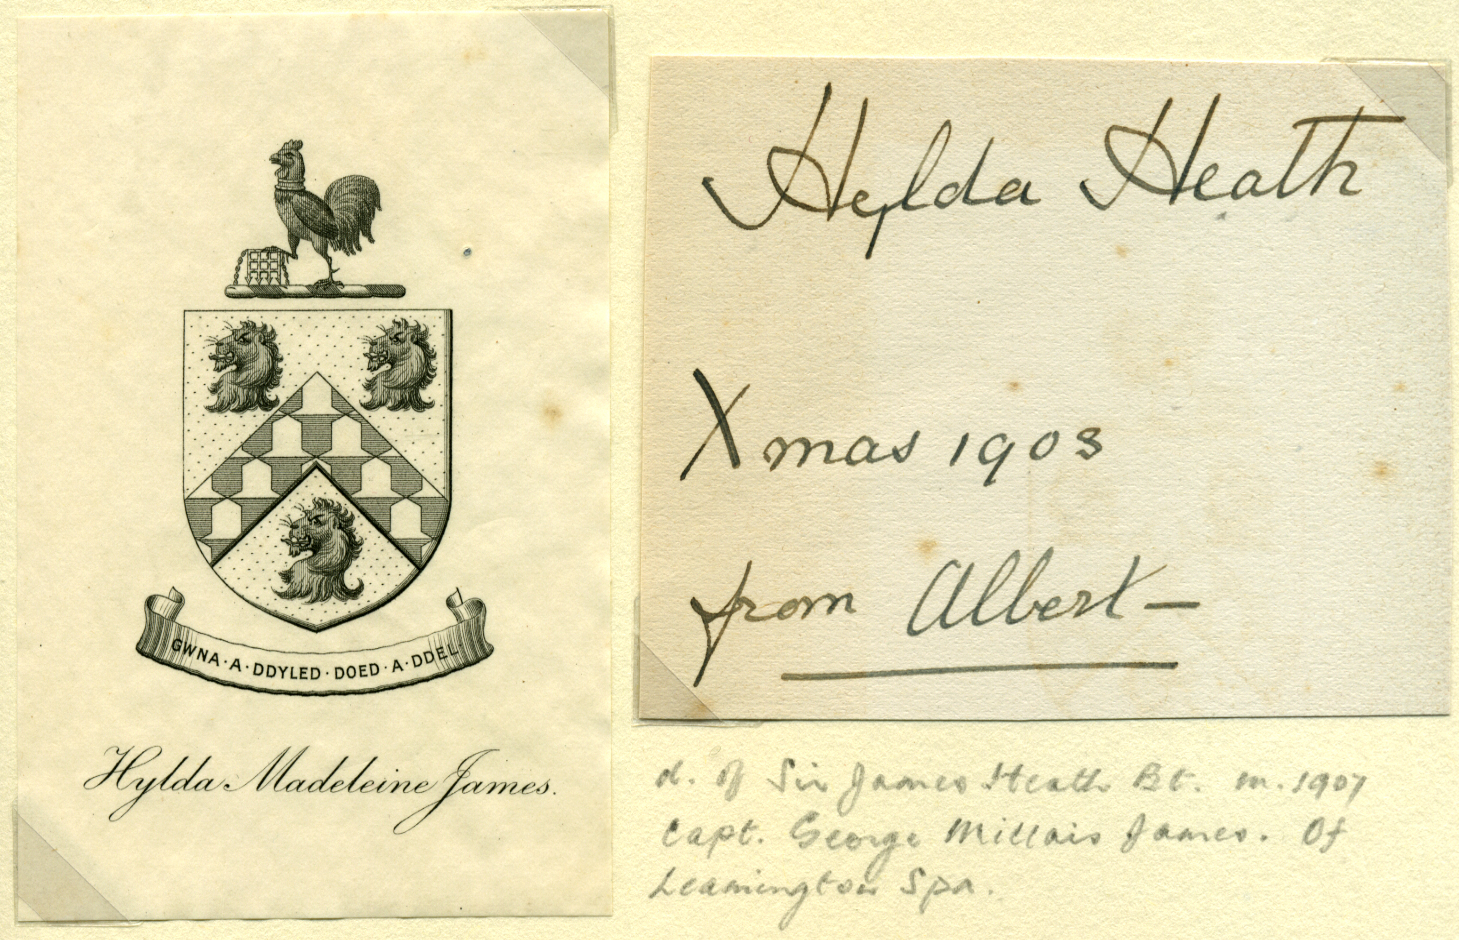 GWNA·A·DDYLED·DOED·A·DDEL
Hylda Madeleine James.
Hylda Heath
Xmas 1903
from Albert —
d. of Sir James Heath Bt. m. 1907
Capt. George Millais James. Of
Leamington Spa.